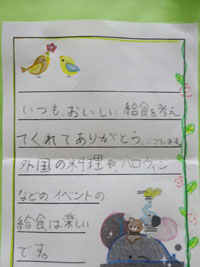 いつも、おいしい給食を考え
てくれてありがとう。ございます。
外国の料理やハロウィン
などのイベントの
給食は楽しい
です。